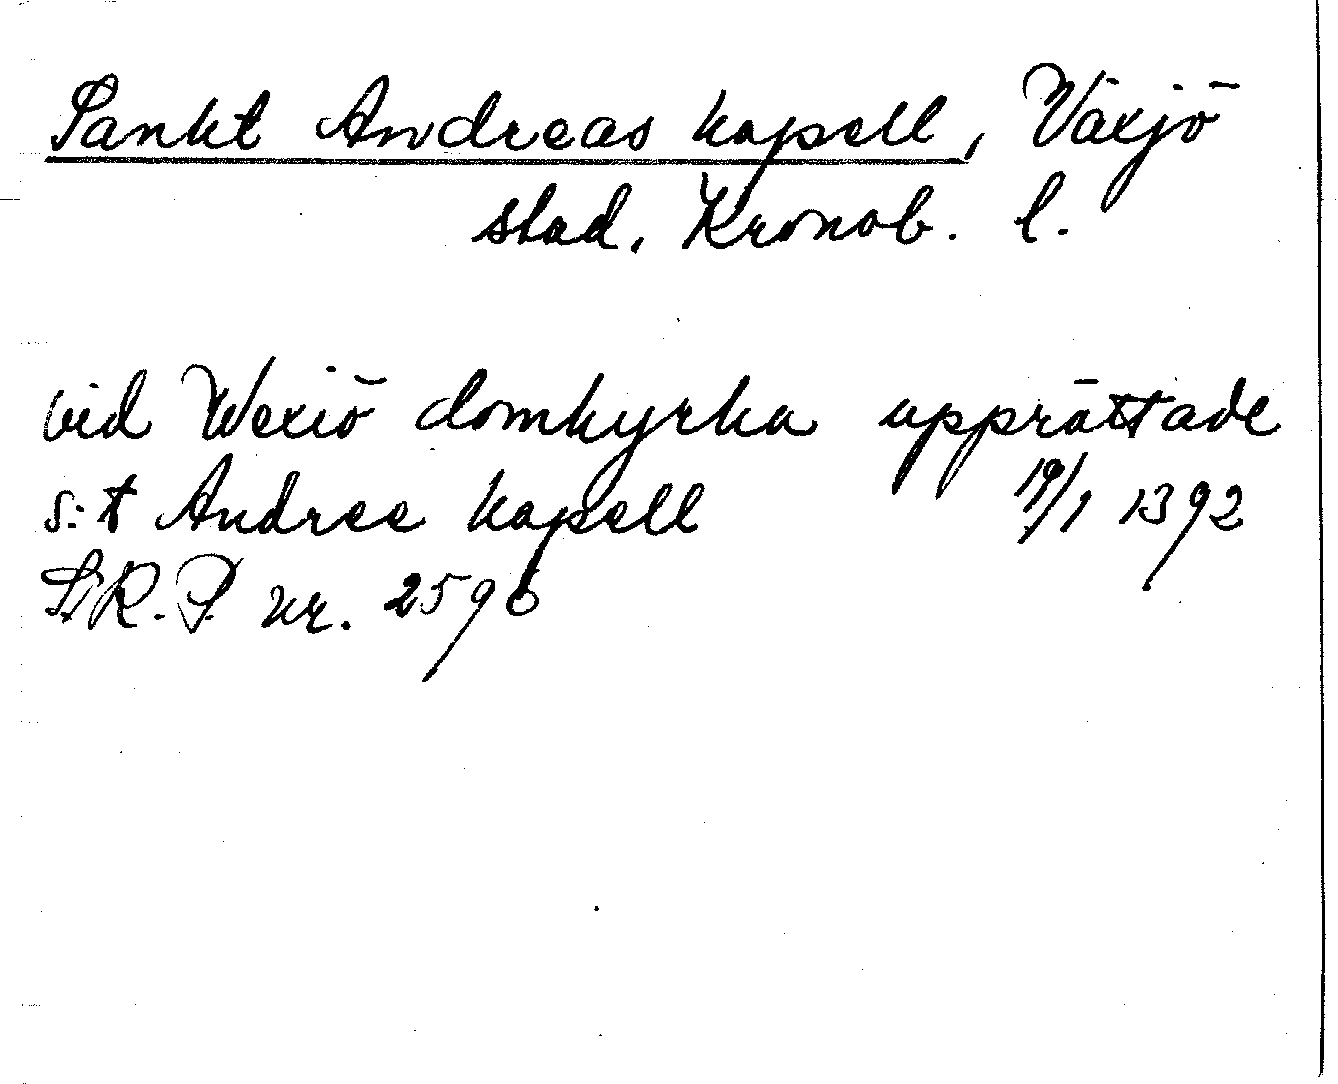 Sankt Andreas kapell, Växjö
stad. Kronob. l.
vid Wexiö domkyrka upprättade
s:t Andree kapell 19/1 1392
S.R.P. nr. 2596